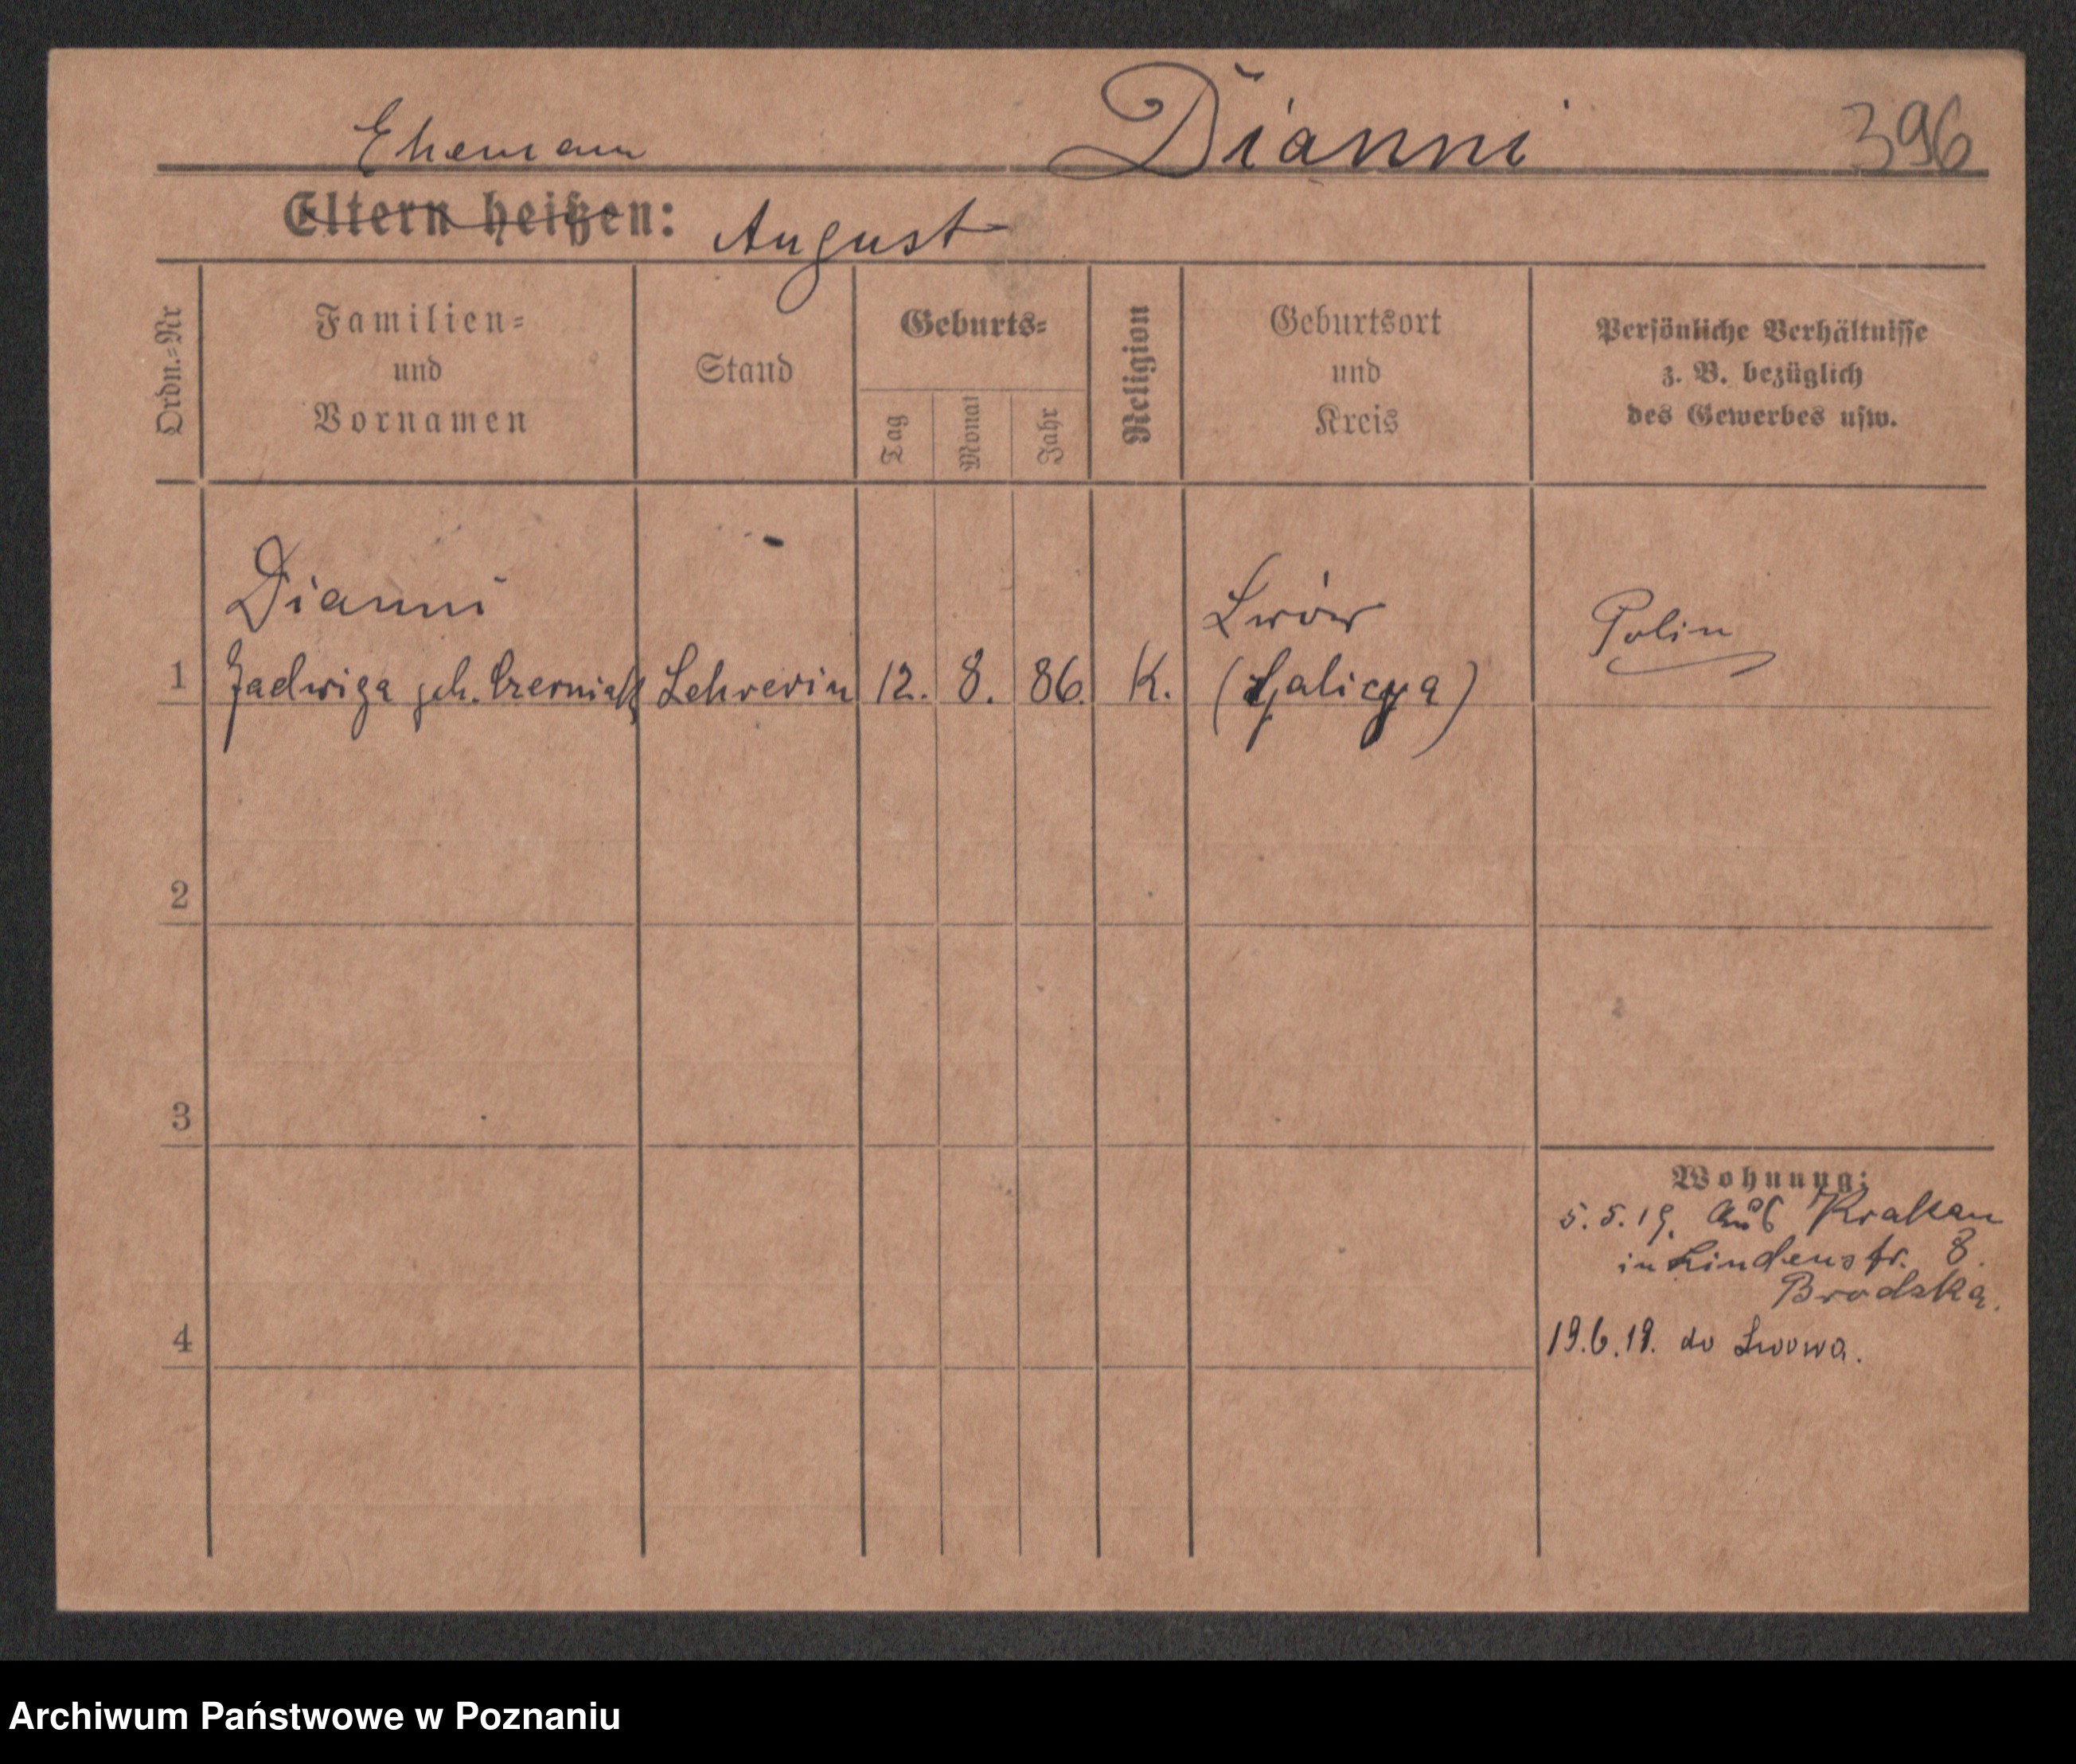 Ehemann Dianni 396
Eltern heißen: August
Ordn.=Nr
Familien=
und
Vornamen
Stand
Geburts=
Tag
Monat
Jahr
Religion
Geburtsort
und
Kreis
Persönliche Verhältnisse
z. B. bezüglich
des Gewerbes usw.
Dianni Lwów Polin
1 Jadwiga geb. Lehrerin 12. 8. 86. K. (Galicya)
2
3
Wohnung:
5.5.19. aus Krakau
in Lindenstr. 8.
4
19.6.19. do Lwowa.
Archiwum Państwowe w Poznaniu